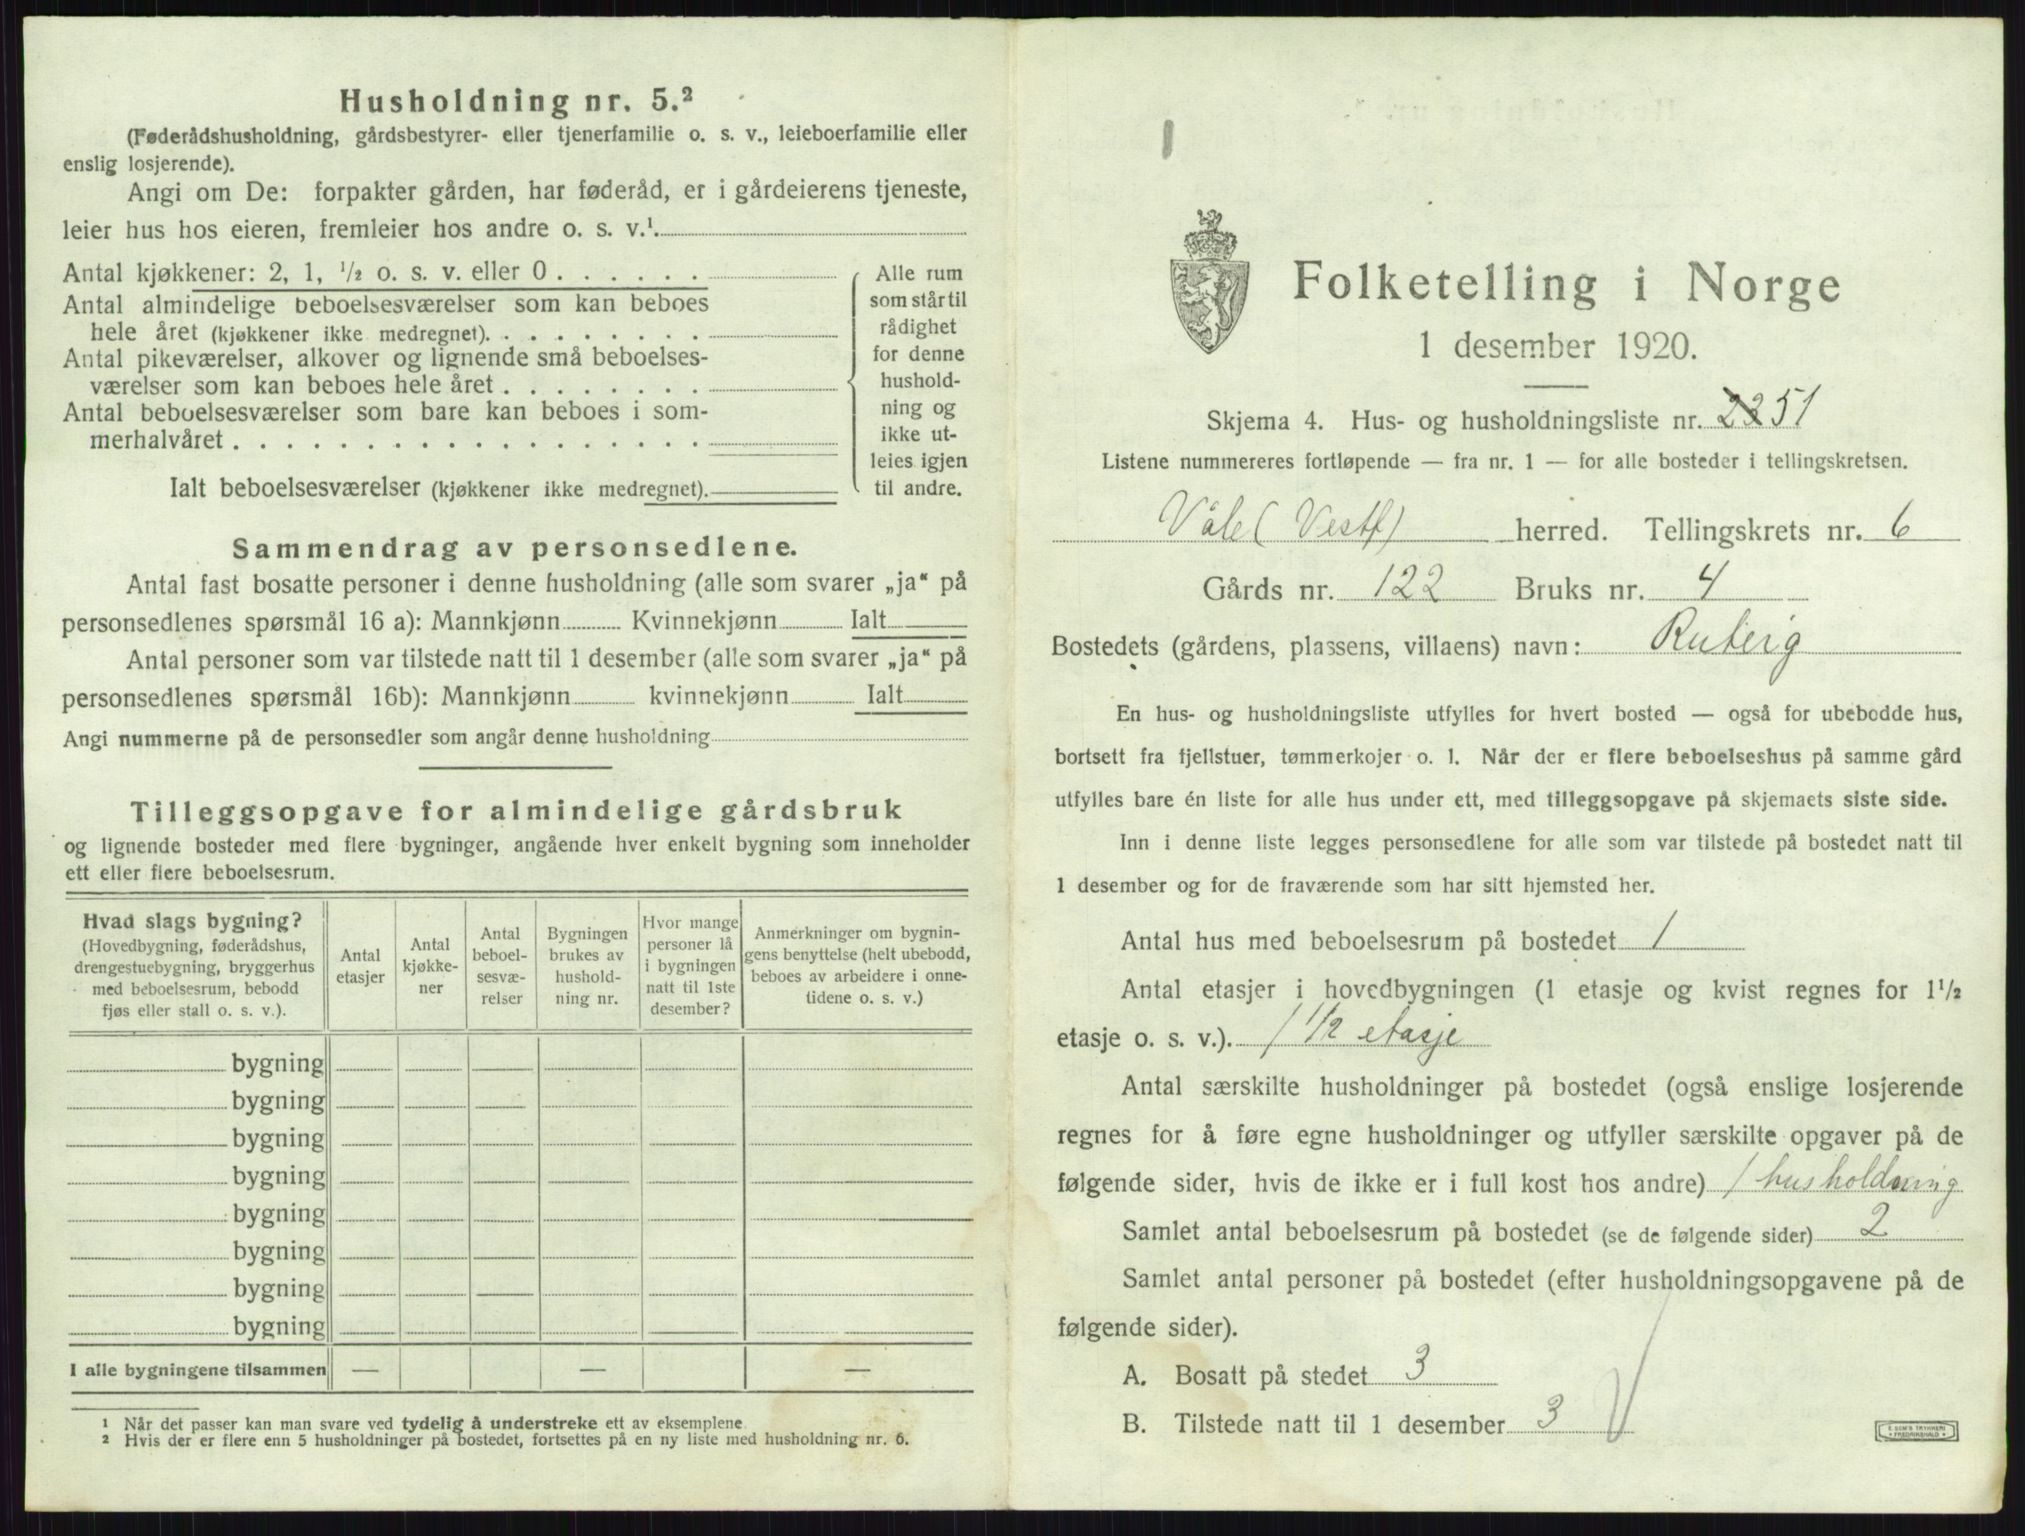 Husholdning nr. 5.²
(Føderådshusholdning, gårdsbestyrer- eller tjenerfamilie o. s. v., leieboerfamilie eller
enslig losjerende).
Angi om De: forpakter gården, har føderåd, er i gårdeierens tjeneste,
leier hus hos eieren, fremleier hos andre o. s. v.¹.
Antal kjøkkener: 2, 1, ½ o. s. v. eller 0 . . . . . .
Antal almindelige beboelsesværelser som kan beboes
hele året (kjøkkener ikke medregnet). . . . . . . . .
Antal pikeværelser, alkover og lignende små beboelses-
værelser som kan beboes hele året . . . . . . . .
Antal beboelsesværelser som bare kan beboes i som-
merhalvåret . . . . . . . . . . . . . . . . . .
Ialt beboelsesværelser (kjøkkener ikke medregnet).
Alle rum
som står til
rådighet
for denne
hushold-
ning og
ikke ut-
leies igjen
til andre.
Sammendrag av personsedlene.
Antal fast bosatte personer i denne husholdning (alle som svarer „ja“ på
personsedlenes spørsmål 16 a): Mannkjønn Kvinnekjønn Ialt
Antal personer som var tilstede natt til 1 desember (alle som svarer „ja“ på
personsedlenes spørsmål 16b): Mannkjønn kvinnekjønn Ialt
Angi nummerne på de personsedler som angår denne husholdning
Tilleggsopgave for almindelige gårdsbruk
og lignende bosteder med flere bygninger, angående hver enkelt bygning som inneholder
ett eller flere beboelsesrum.
Hvad slags bygning?
(Hovedbygning, føderådshus,
drengestuebygning, bryggerhus
med beboelsesrum, bebodd
fjøs eller stall o. s. v.).
Antal
etasjer
Antal
kjøkke-
ner
Antal
beboel-
sesvæ-
relser
Bygningen
brukes av
hushold-
ning nr.
Hvor mange
personer lå
i bygningen
natt til 1ste
desember?
Anmerkninger om bygnin-
gens benyttelse (helt ubebodd,
beboes av arbeidere i onne-
tidene o. s. v.)
bygning
bygning
bygning
bygning
bygning
bygning
bygning
bygning
I alle bygningene tilsammen — — —
¹ Når det passer kan man svare ved tydelig å understreke ett av eksemplene.
² Hvis der er flere enn 5 husholdninger på bostedet, fortsettes på en ny liste med husholdning nr. 6.
Folketelling i Norge
1 desember 1920.
Skjema 4. Hus- og husholdningsliste nr. 51
Listene nummereres fortløpende — fra nr. 1 — for alle bosteder i tellingskretsen.
Våle (Vestf) herred. Tellingskrets nr. 6
Gårds nr. 122 Bruks nr. 4
Bostedets (gårdens, plassens, villaens) navn:
En hus- og husholdningsliste utfylles for hvert bosted — også for ubebodde hus,
bortsett fra fjellstuer, tømmerkojer o. l. Når der er flere beboelseshus på samme gård
utfylles bare én liste for alle hus under ett, med tilleggsopgave på skjemaets siste side.
Inn i denne liste legges personsedlene for alle som var tilstede på bostedet natt til
1 desember og for de fraværende som har sitt hjemsted her.
Antal hus med beboelsesrum på bostedet 1
Antal etasjer i hovedbygningen (1 etasje og kvist regnes for 1½
etasje o. s. v.). 1 1/2 etasje
Antal særskilte husholdninger på bostedet (også enslige losjerende
regnes for å føre egne husholdninger og utfyller særskilte opgaver på de
følgende sider, hvis de ikke er i full kost hos andre) 1 husholdning
Samlet antal beboelsesrum på bostedet (se de følgende sider) 2
Samlet antal personer på bostedet (efter husholdningsopgavene på de
følgende sider).
A. Bosatt på stedet 3
B. Tilstede natt til 1 desember 3